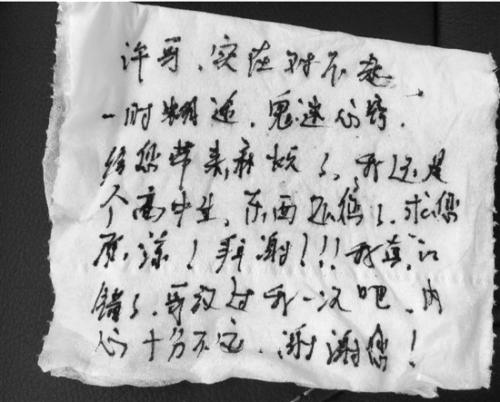 许哥、实在对不起
一时糊涂,鬼迷心窍.
给您带来麻烦了、我还是
个高中生、东西还您了、求您
原谅!拜谢!!!我真认
错了、哥放过我一次吧、内
心十分不安、谢谢您!